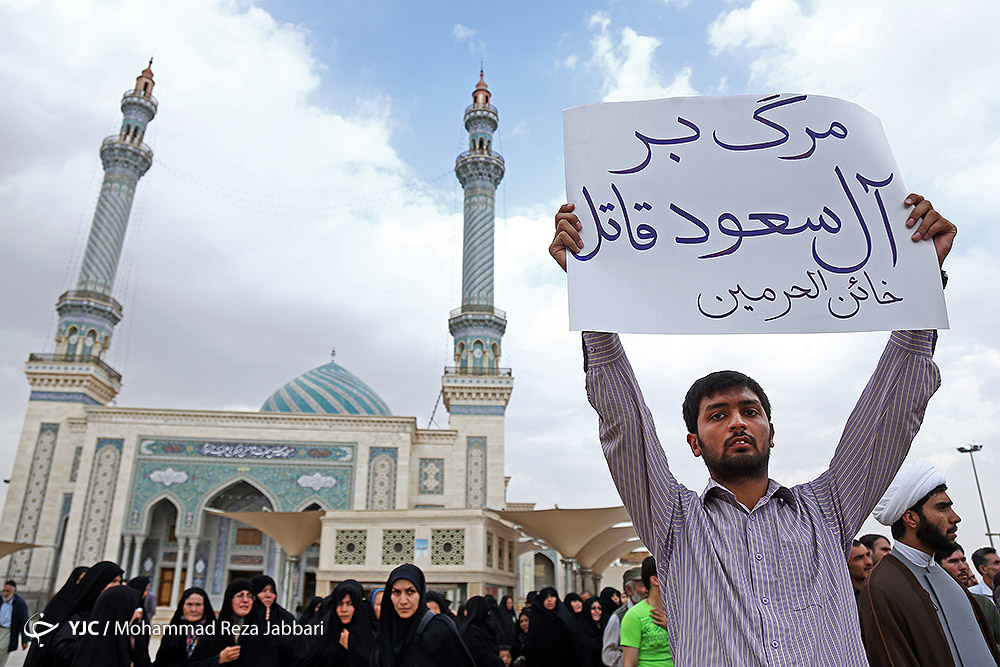 مرگ بر
آل سعود قاتل
خائن الحرمین
YJC / Mohammad Reza Jabbari